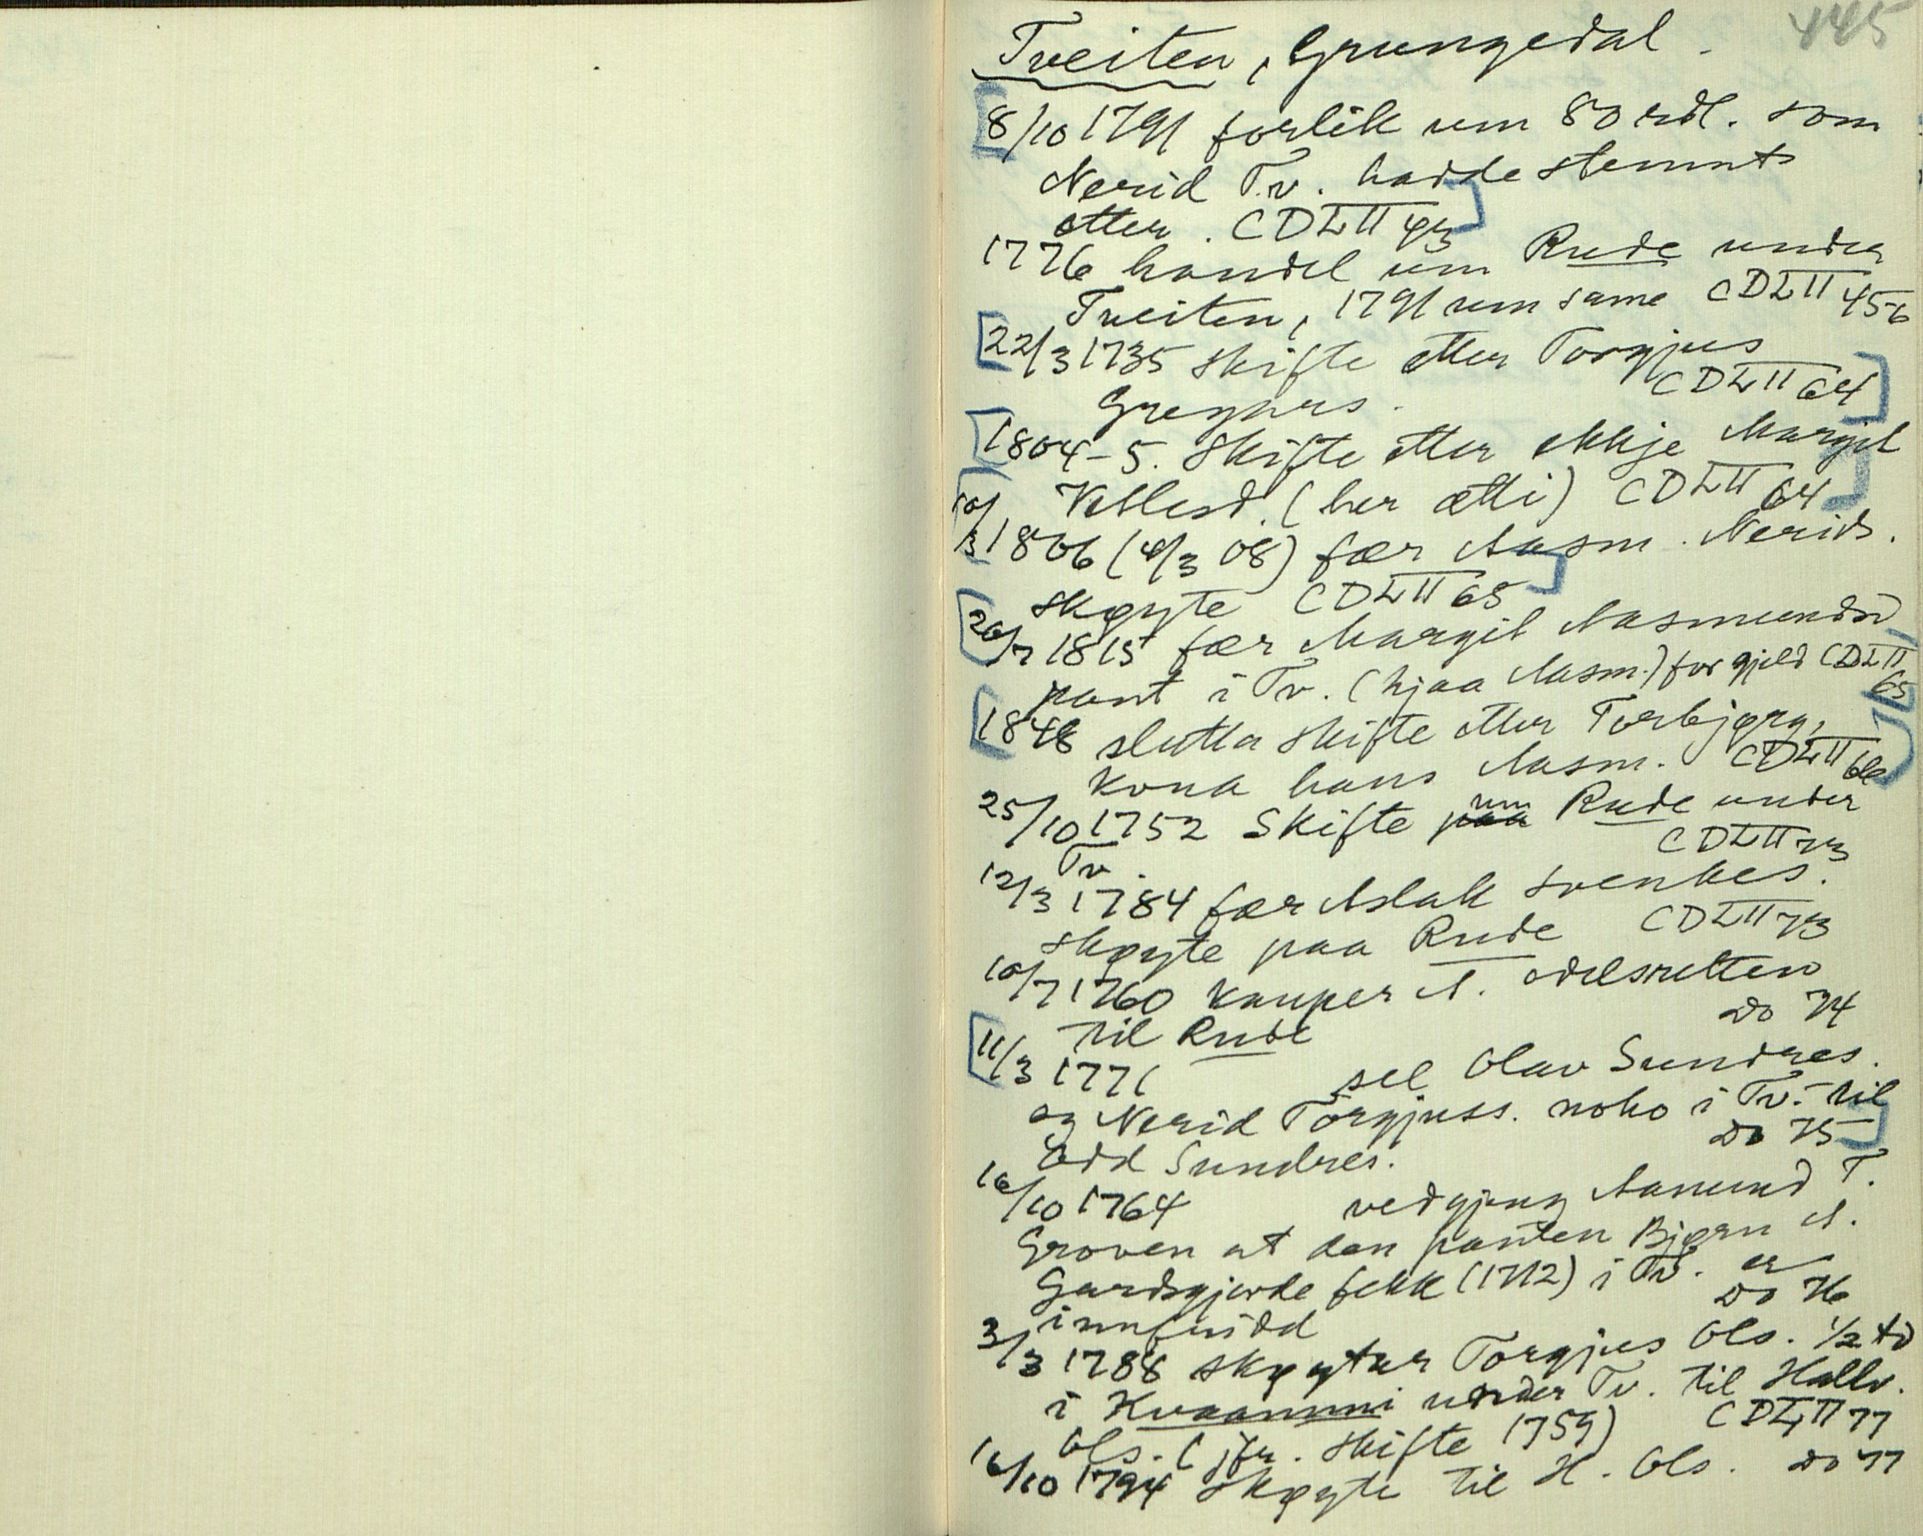 445
Tveiten, Grungedal.
[8/10 1791 forlik um 80 rdl. som
Nerid Tv. hadde stemnt
etter. CD LII 43]
1776 handel um Rude under
Tveiten, 1791 um same CD LII 45-6
[22/3 1735 skifte etter Torgjus
Gregars. CD LII 64]
[1804-5. Skifte etter ekkje Margit
Vetlesd. (her ætti) CD LII 64]
[10/3 1806 (4/3 08) fær Aasm. Nerids.
skøyte CD LII 65]
[20/7 1815 fær Margit Aasmundsd
pant i Tv. (hjaa Aasm.) for gjeld CD LII 65]
[1848 slutta skifte etter Torbjørg,
kona hans Aasm. CD LII 66]
25/10 1752 Skifte um Rude under
Tv. CD LII 73
12/3 1784 fær Aslak Svenkes.
skøyte paa Rude CD LII 73
10/7 1760 kauper A. odelsretten
til Rude Do 74
[11/3 1771 sel Olav Sundres.
og Nerid Torgjuss. noko i Tv. til
Odd Sundres. Do 75]
16/10 1764 vedgjeng Aanund T.
Groven at den panten Bjørn A.
Gardsgjerde fekk (1712) i Tv. er
innfridd Do 76
3/3 1788 skøytar Torgjus Ols. 1/2 td
i Kvaammi under Tv. til Hallv.
Ols. (jfr. skifte 1759) CD LII 77
16/10 1794 skøyte til H. Ols. Do 77